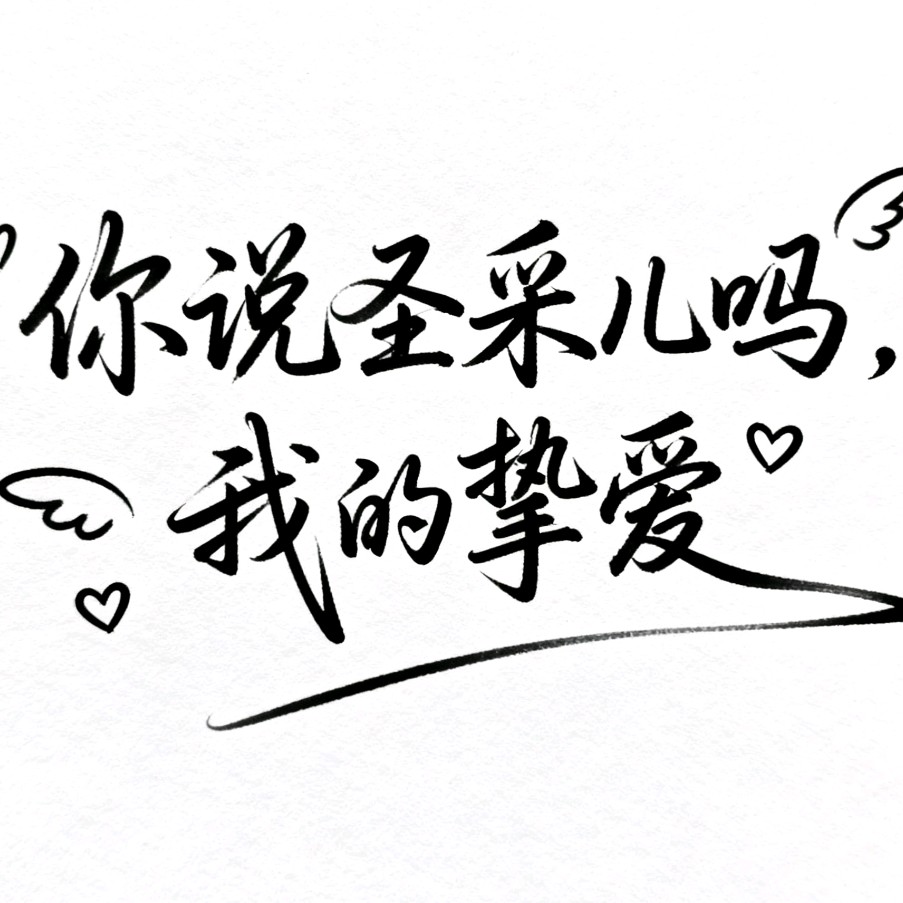 你说圣采儿吗，
我的挚爱